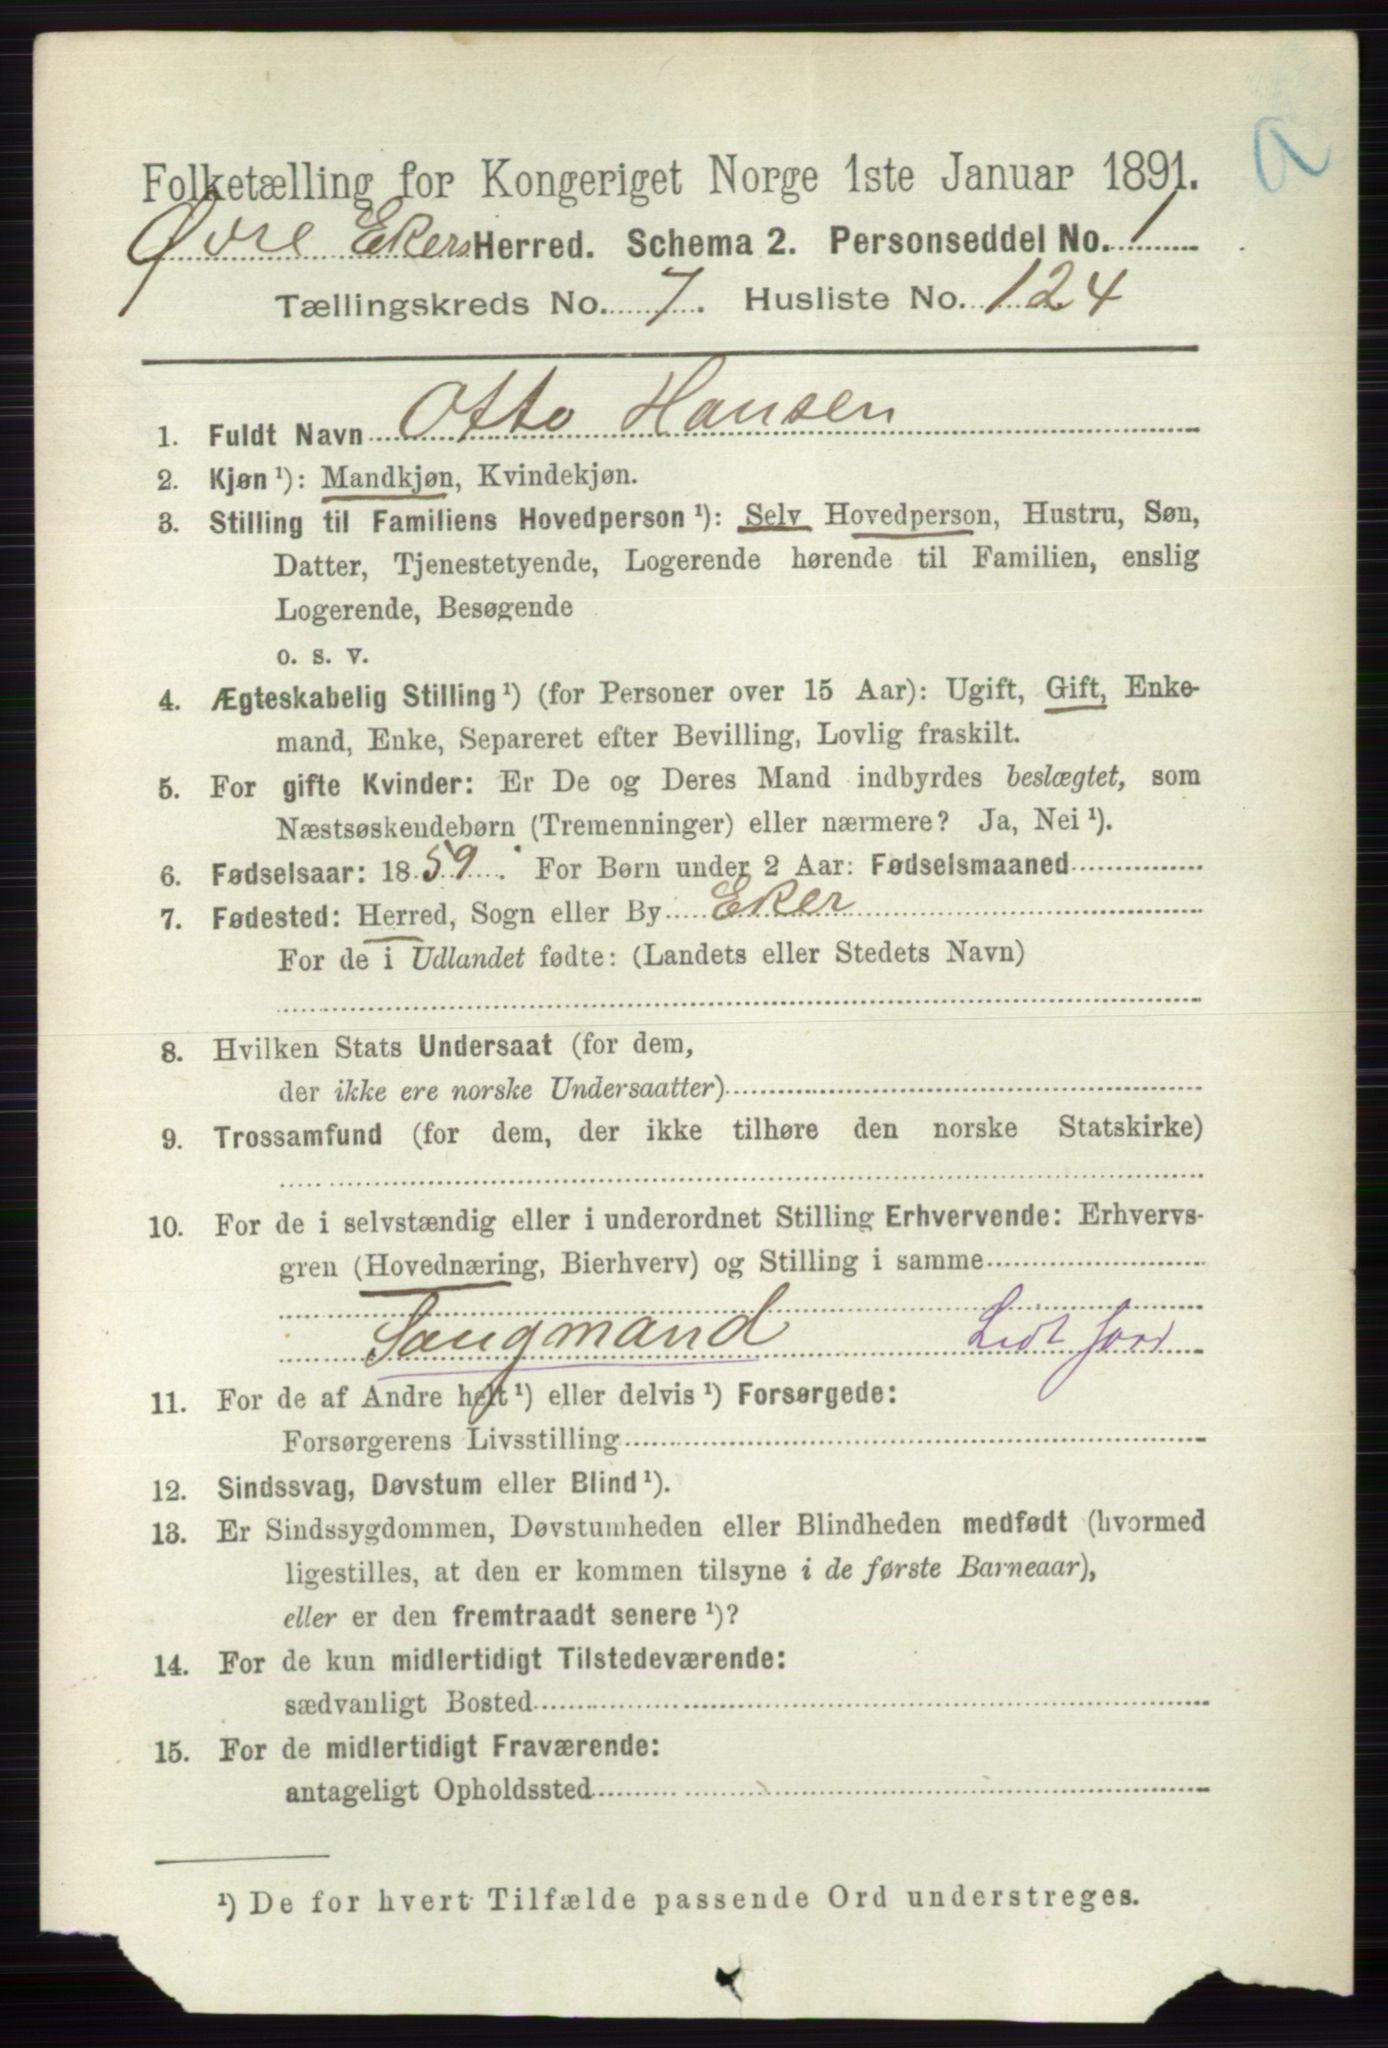 a
Folketælling for Kongeriget Norge 1ste Januar 1891.
Øvre Ekers Herred. Schema 2. Personseddel No. 1
Tællingskreds No. 7. Husliste No. 124
1. Fuldt Navn Otto Hansen
2. Kjøn ¹): Mandkjøn, Kvindekjøn.
3. Stilling til Familiens Hovedperson ¹): Selv Hovedperson, Hustru, Søn,
Datter, Tjenestetyende, Logerende hørende til Familien, enslig
Logerende, Besøgende
o. s. v.
4. Ægteskabelig Stilling ¹) (for Personer over 15 Aar): Ugift, Gift, Enke-
mand, Enke, Separeret efter Bevilling, Lovlig fraskilt.
5. For gifte Kvinder: Er De og Deres Mand indbyrdes beslægtet, som
Næstsøskendebørn (Tremenninger) eller nærmere? Ja, Nei ¹).
6. Fødselsaar: 1859. For Børn under 2 Aar: Fødselsmaaned
7. Fødested: Herred, Sogn eller By Eker
For de i Udlandet fødte: (Landets eller Stedets Navn)
8. Hvilken Stats Undersaat (for dem,
der ikke ere norske Undersaatter)
9. Trossamfund (for dem, der ikke tilhøre den norske Statskirke)
10. For de i selvstændig eller i underordnet Stilling Erhvervende: Erhvervs-
gren (Hovednæring, Bierhverv) og Stilling i samme
Saugmand Lidt Jord
11. For de af Andre helt ¹) eller delvis ¹) Forsørgede:
Forsørgerens Livsstilling
12. Sindssvag, Døvstum eller Blind ¹).
13. Er Sindssygdommen, Døvstumheden eller Blindheden medfødt (hvormed
ligestilles, at den er kommen tilsyne i de første Barneaar),
eller er den fremtraadt senere ¹)?
14. For de kun midlertidigt Tilstedeværende:
sædvanligt Bosted
15. For de midlertidigt Fraværende:
antageligt Opholdssted
¹) De for hvert Tilfælde passende Ord understreges.